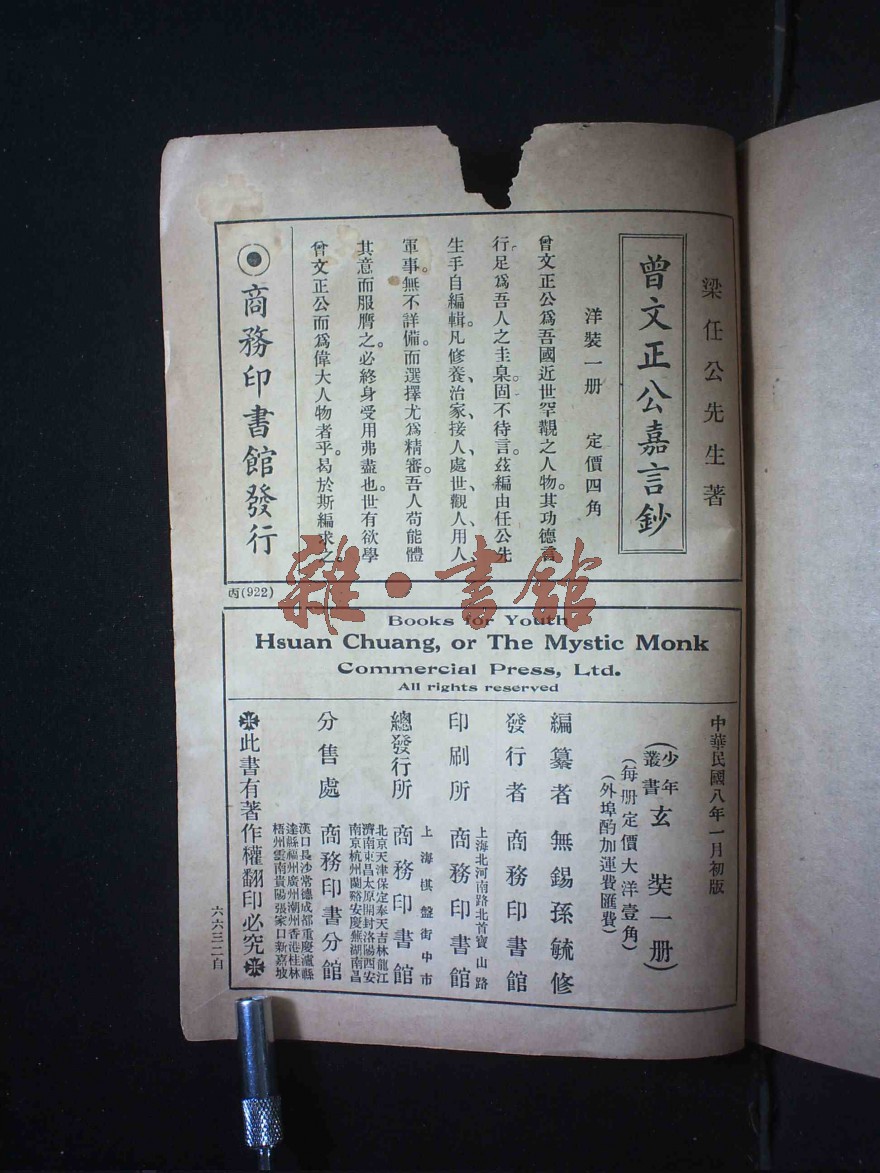 梁任公先生著
曾文正公嘉言鈔
洋裝一册 定價四角
曾文正公爲吾國近世罕覯之人物。其功德言
行。足爲吾人之圭臬。固不待言。茲編由任公先
生手自編輯。凡修養、治家、接人、處世、觀人、用人、
軍事。無不詳備。而選擇尤爲精審。吾人苟能體
其意而服膺之。必終身受用弗盡也。世有欲學
曾文正公而爲偉大人物者乎。曷於斯編求之。
商務印書館發行
丙(922)
雜·書館
Books for Youth
Hsuan Chuang, or The Mystic Monk
Commercial Press, Ltd.
All rights reserved
中華民國八年一月初版
(少年叢書玄奘一册)
(每册定價大洋壹角)
(外埠酌加運費匯費)
編纂者 無錫孫毓修
發行者 商務印書館
上海北河南路北首寶山路
印刷所 商務印書館
上海棋盤街中市
總發行所 商務印書館
北京天津保定奉天吉林龍江
濟南東昌太原開封洛陽西安
南京杭州蘭谿安慶蕪湖南昌
分售處 商務印書分館
漢口長沙常德成都重慶瀘縣
達縣福州廣州潮州香港桂林
梧州雲南貴陽張家口新嘉坡
此書有著作權翻印必究
六六三二自